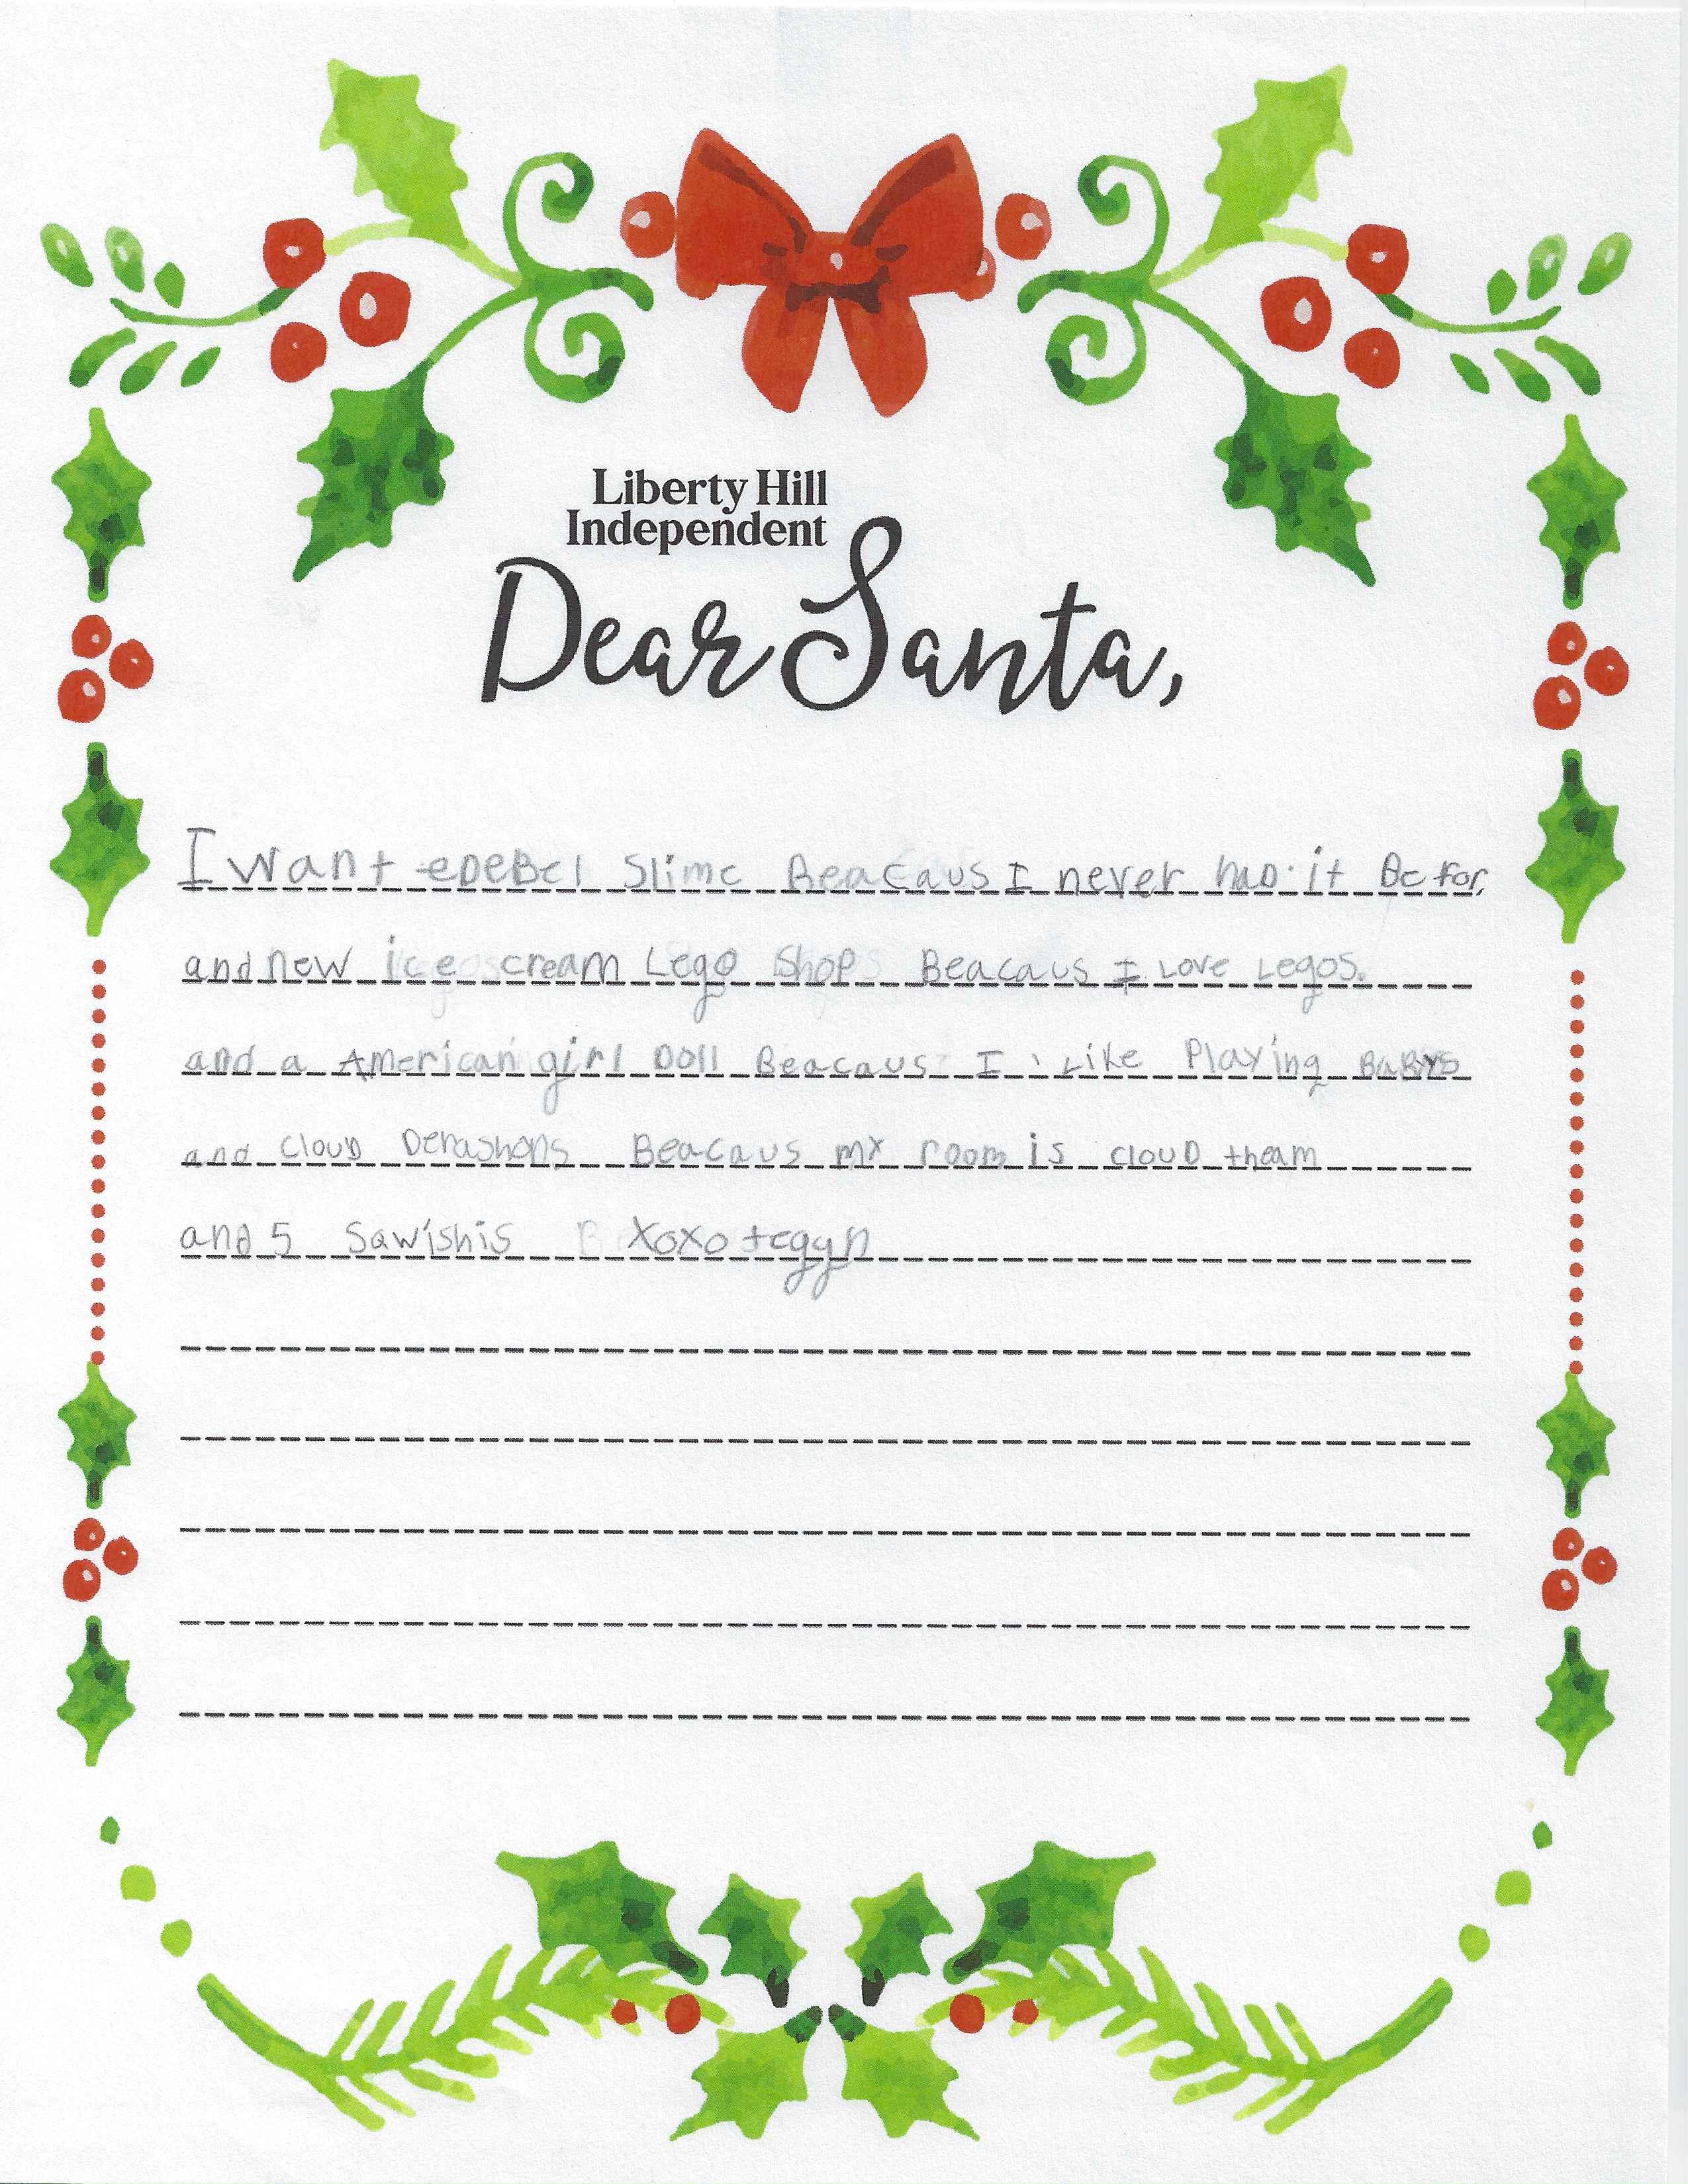 Liberty Hill
Independent
Dear Santa,
I want eDeBel Slime Beacaus I never haD it Be for,
and new ice cream Lego Shop Beacaus I Love Legos.
and a American girl Doll Beacaus I Like Playing BaBys
and cloud Derashons Beacaus my room is cloud theam
and 5 Sqwishis XoXo tegyn